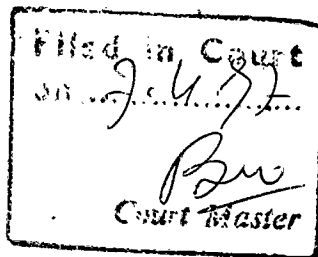 Filed in Court
on 2.4.97
Court Master